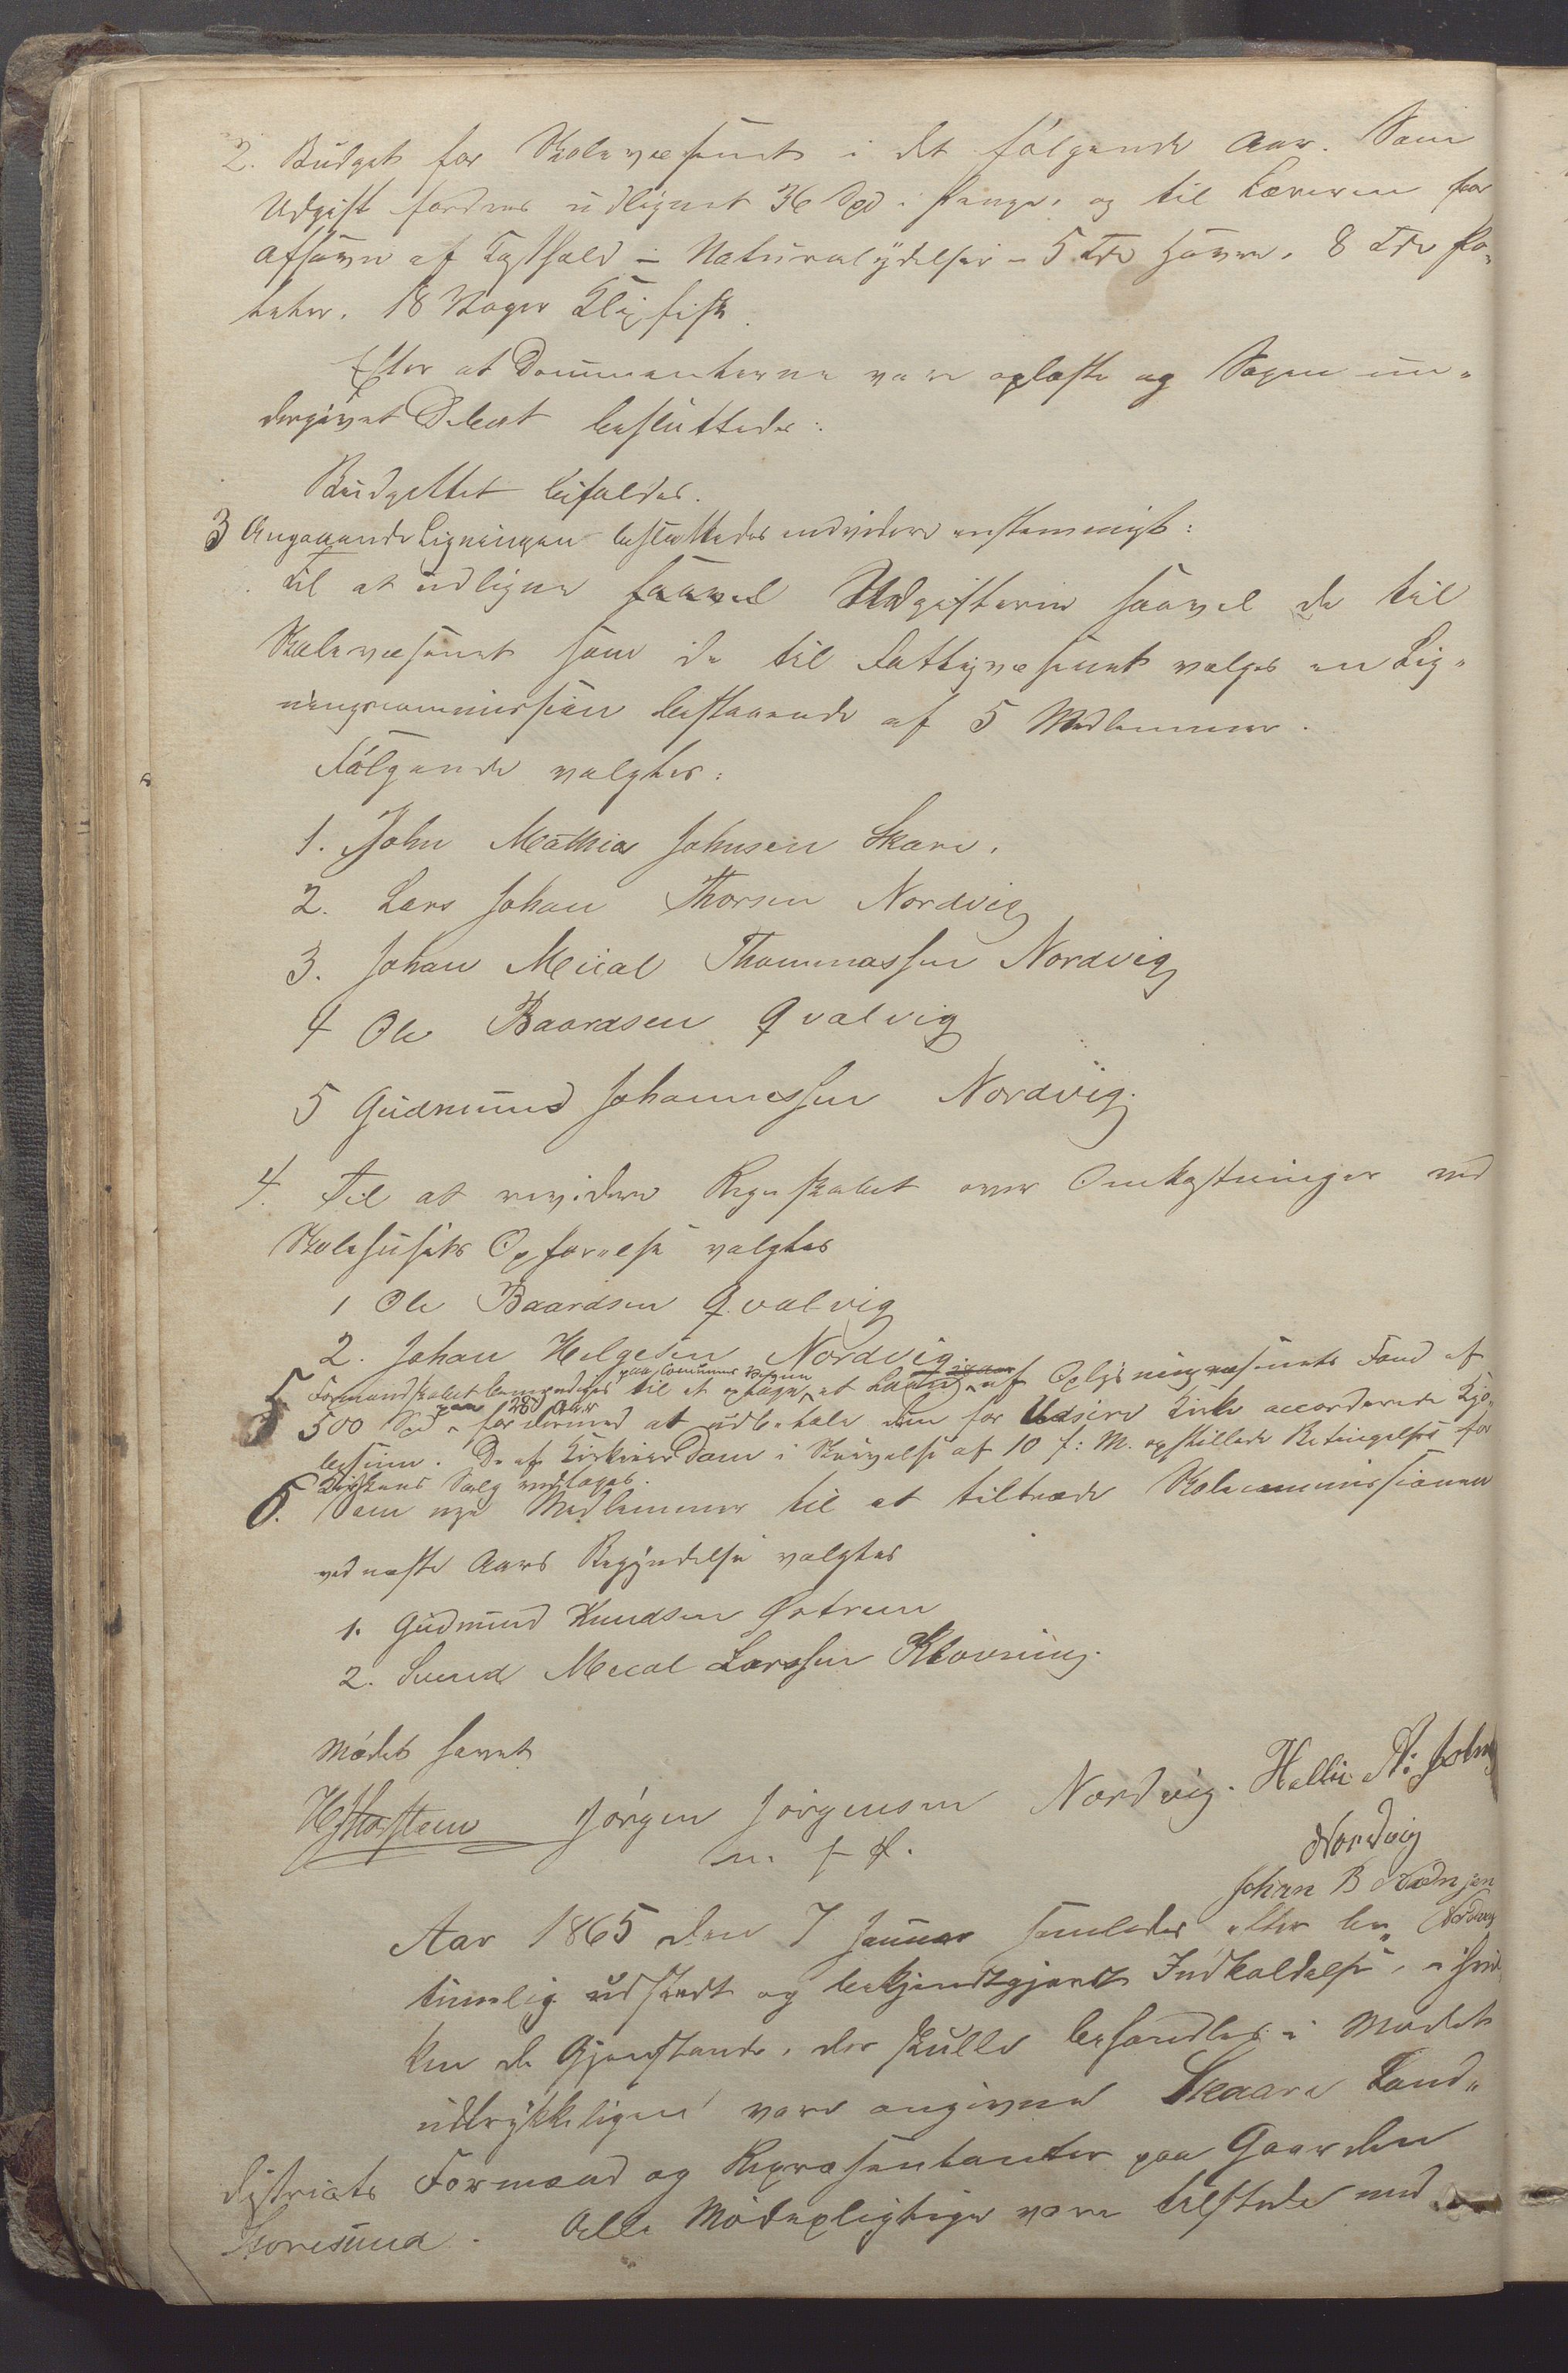 2. Budget for Skolevæsenet i det følgende Aar. Som
Udgift fordres udlignet 36 Spd i Penge, og til Læreren for
Afsavn af Kosthold i Naturalydelser - 5 Tdr Havre, 8 Tdr Po-
teter, 18 Voger Klipfisk.
Efter at Documenterne vare oplæste og Sagen un-
dergivet Debat besluttedes:
Budgettet bifaldes.
3 Angaaende Ligningen besluttedes endvidere enstemmigt:
Til at udligne saavel Udgifterne saavel de til
Skolevæsenet som de til Fattigvæsenet vælges en Lig-
ningscommission bestaaende af 5 Medlemmer.
Følgende valgtes:
1. John Mathias Johnsen Skare.
2. Lars Johan Thorsen Nordvig
3. Johan Mical Thommassen Nordvig
4 Ole Baardsen Qvalvig
5 Gudmund Johannessen Nordvig.
4. Til at revidere Regnskabet over Omkostninger ved
Skolehusets Opførelse valgtes
1 Ole Baardsen Qvalvig
2. Johan Helgesen Nordvig.
paa Communens Vegne
5 Formandskabet bemyndiges til at optage et Laan af Oplysningsvæsenets Fond af
paa 28 Aar
500 Spd for dermed at udbetale den for Udsire Kirke accorderede Kjø-
besum. De af Kirkeier Dam i Skrivelse af 10 f: M. opstillede Betingelser for
Kirkens Salg vedtages.
6. Som nye Medlemmer til at tiltræde Skolecommissionen
ved næste Aars Begyndelse valgtes
1. Gudmund Knudsen Østrem
2. Svend Mecal Larssen Klovning.
Mødet hævet
Jørgen Jørgensen Nordvig. Helli
m. f P.
Nordvig
Johan B
Nordvig
Aar 1865 den 7 Januar samledes efter be-
timelig udstedt og bekjendtgjordt Indkaldelse, i hvil-
ken de Gjenstande, der skulle behandles i Mødet
udtrykkeligen vare angivne Skaare Land-
districts Formænd og Repræsentanter paa Gaarden
Storesund. Alle Mødepligtige vare tilstede med